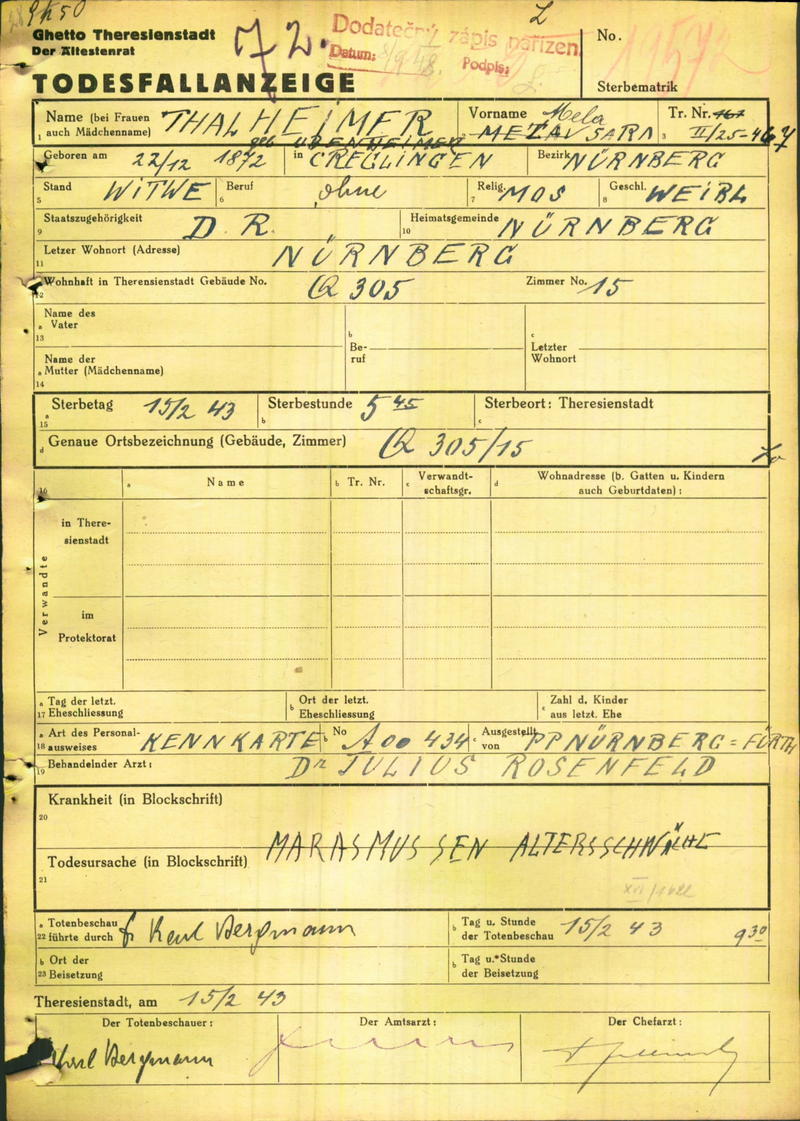 Ghetto Theresienstadt
Der Ältestenrat
72.
Dodatečný zápis nařízen.
Datum: 8/9 48. Podpis:
No. 19572
TODESFALLANZEIGE
Sterbematrik
Name (bei Frauen auch Mädchenname) THALHEIMER
Vorname Mela
Tr. Nr. 167
geb
META SARA
II/25-467
Geboren am 22/12 1872 in CREGLINGEN Bezirk NÜRNBERG
Stand WITWE Beruf ohne Relig. MOS Geschl. WEIBL
Staatszugehörigkeit D. R. Heimatsgemeinde NÜRNBERG
Letzer Wohnort (Adresse) NÜRNBERG
Wohnhaft in Therensienstadt Gebäude No. Q 305 Zimmer No. 15
Name des Vater
Name der Mutter (Mädchenname)
Be-ruf
Letzter Wohnort
Sterbetag 15/2 43 Sterbestunde 5 45 Sterbeort: Theresienstadt
Genaue Ortsbezeichnung (Gebäude, Zimmer) Q 305/15
Name Tr. Nr. Verwandt-schaftsgr. Wohnadresse (b. Gatten u. Kindern auch Geburtdaten):
Verwandte
in There-sienstadt
im Protektorat
Tag der letzt. Eheschliessung Ort der letzt. Eheschliessung Zahl d. Kinder aus letzt. Ehe
Art des Personal-ausweises KENNKARTE No A 00 434 Ausgestellt von PP NÜRNBERG = FÜRTH
Behandelnder Arzt: Dr JULIUS ROSENFELD
Krankheit (in Blockschrift)
MARASMUS SEN ALTERSSCHWÄCHE
Todesursache (in Blockschrift)
Totenbeschau führte durch Dr Karl Bergmann Tag u. Stunde der Totenbeschau 15/2 43 9 30
Ort der Beisetzung Tag u. Stunde der Beisetzung
Theresienstadt, am 15/2 43
Der Totenbeschauer: Der Amtsarzt: Der Chefarzt:
Karl Bergmann